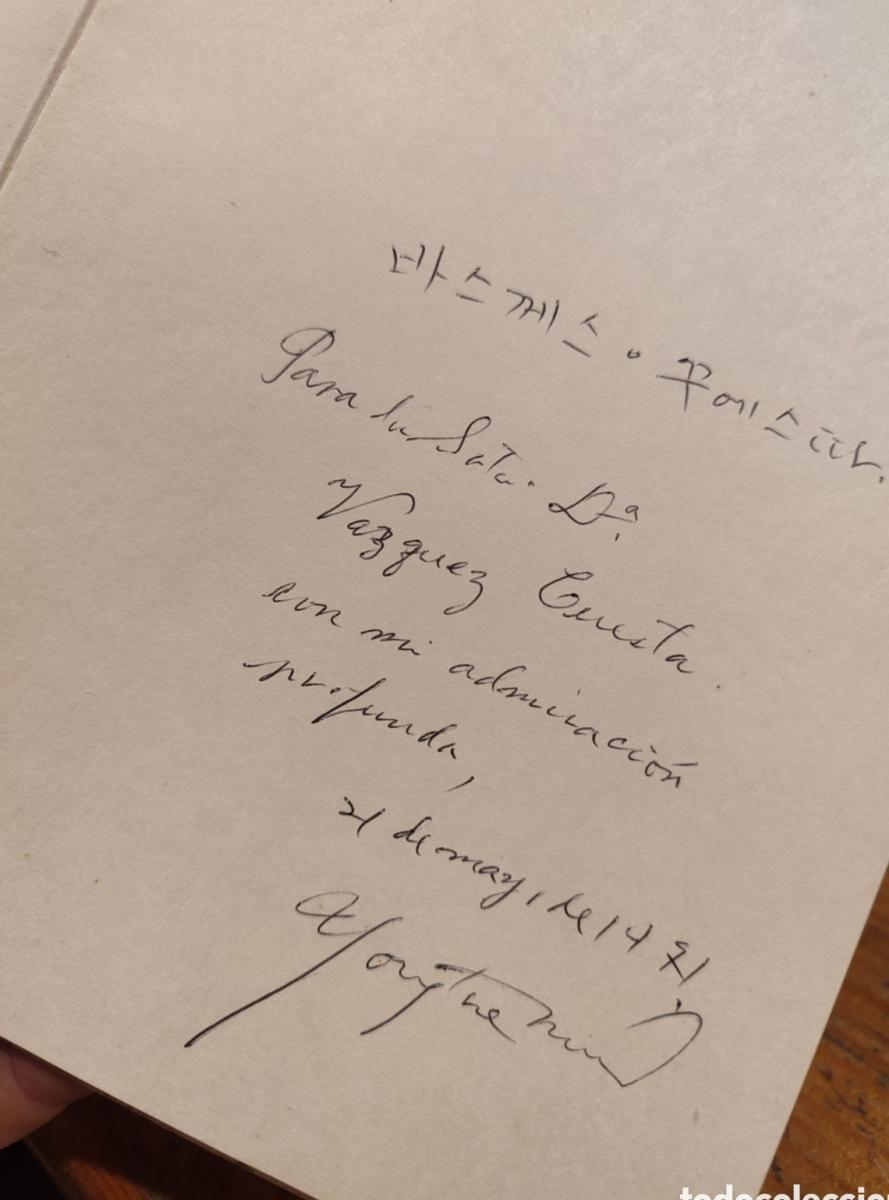 바스께스·꾸에스따.
Para la Srta. Dª.
Vazquez Cuesta.
con mi admiración
profunda,
21 de mayo, de 19
Yong-Tae Min
todocoleccion